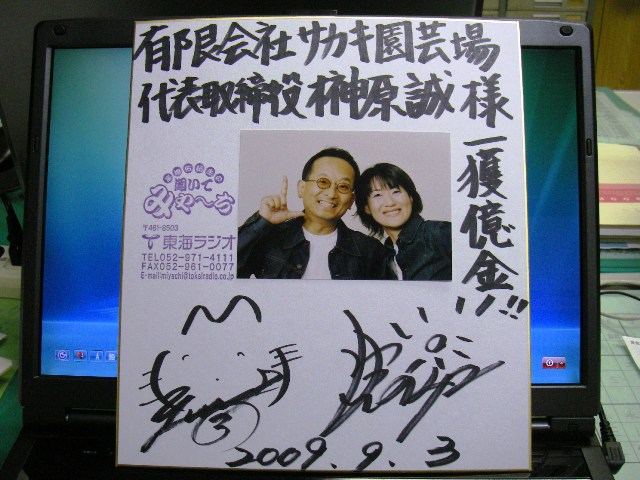 有限会社サカキ園芸場
代表取締役 榊原誠様
一獲億金
聞いて
みゃ〜ち
〒461-8503
東海ラジオ
TEL052-971-4111
FAX052-961-0077
E-mail:miyachi@tokairadio.co.jp
2009.9.3